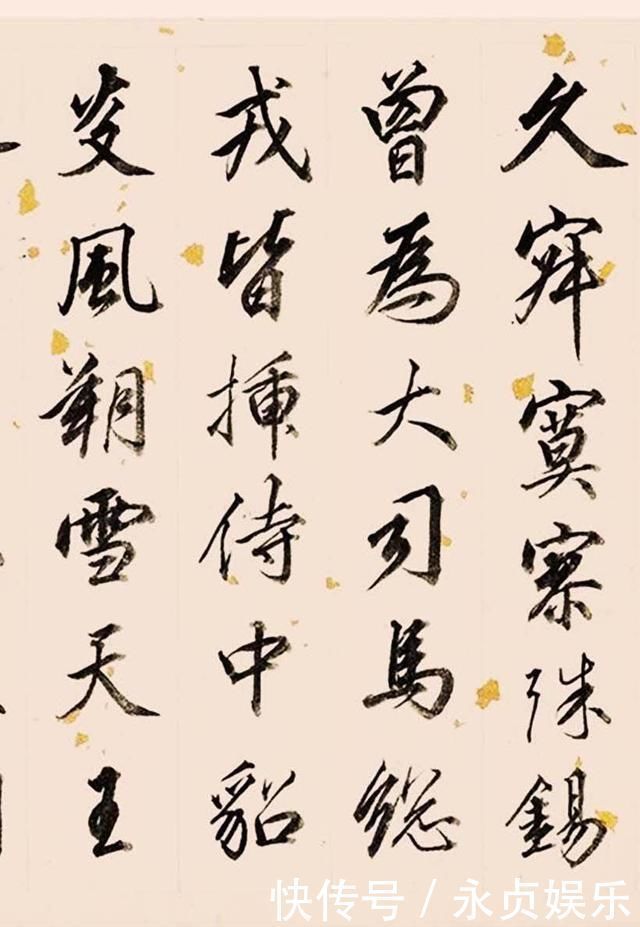 久寂寞寥殊錫
曾為大司馬總
戎皆插侍中貂
炎風朔雪天王
快传号/永贞娱乐